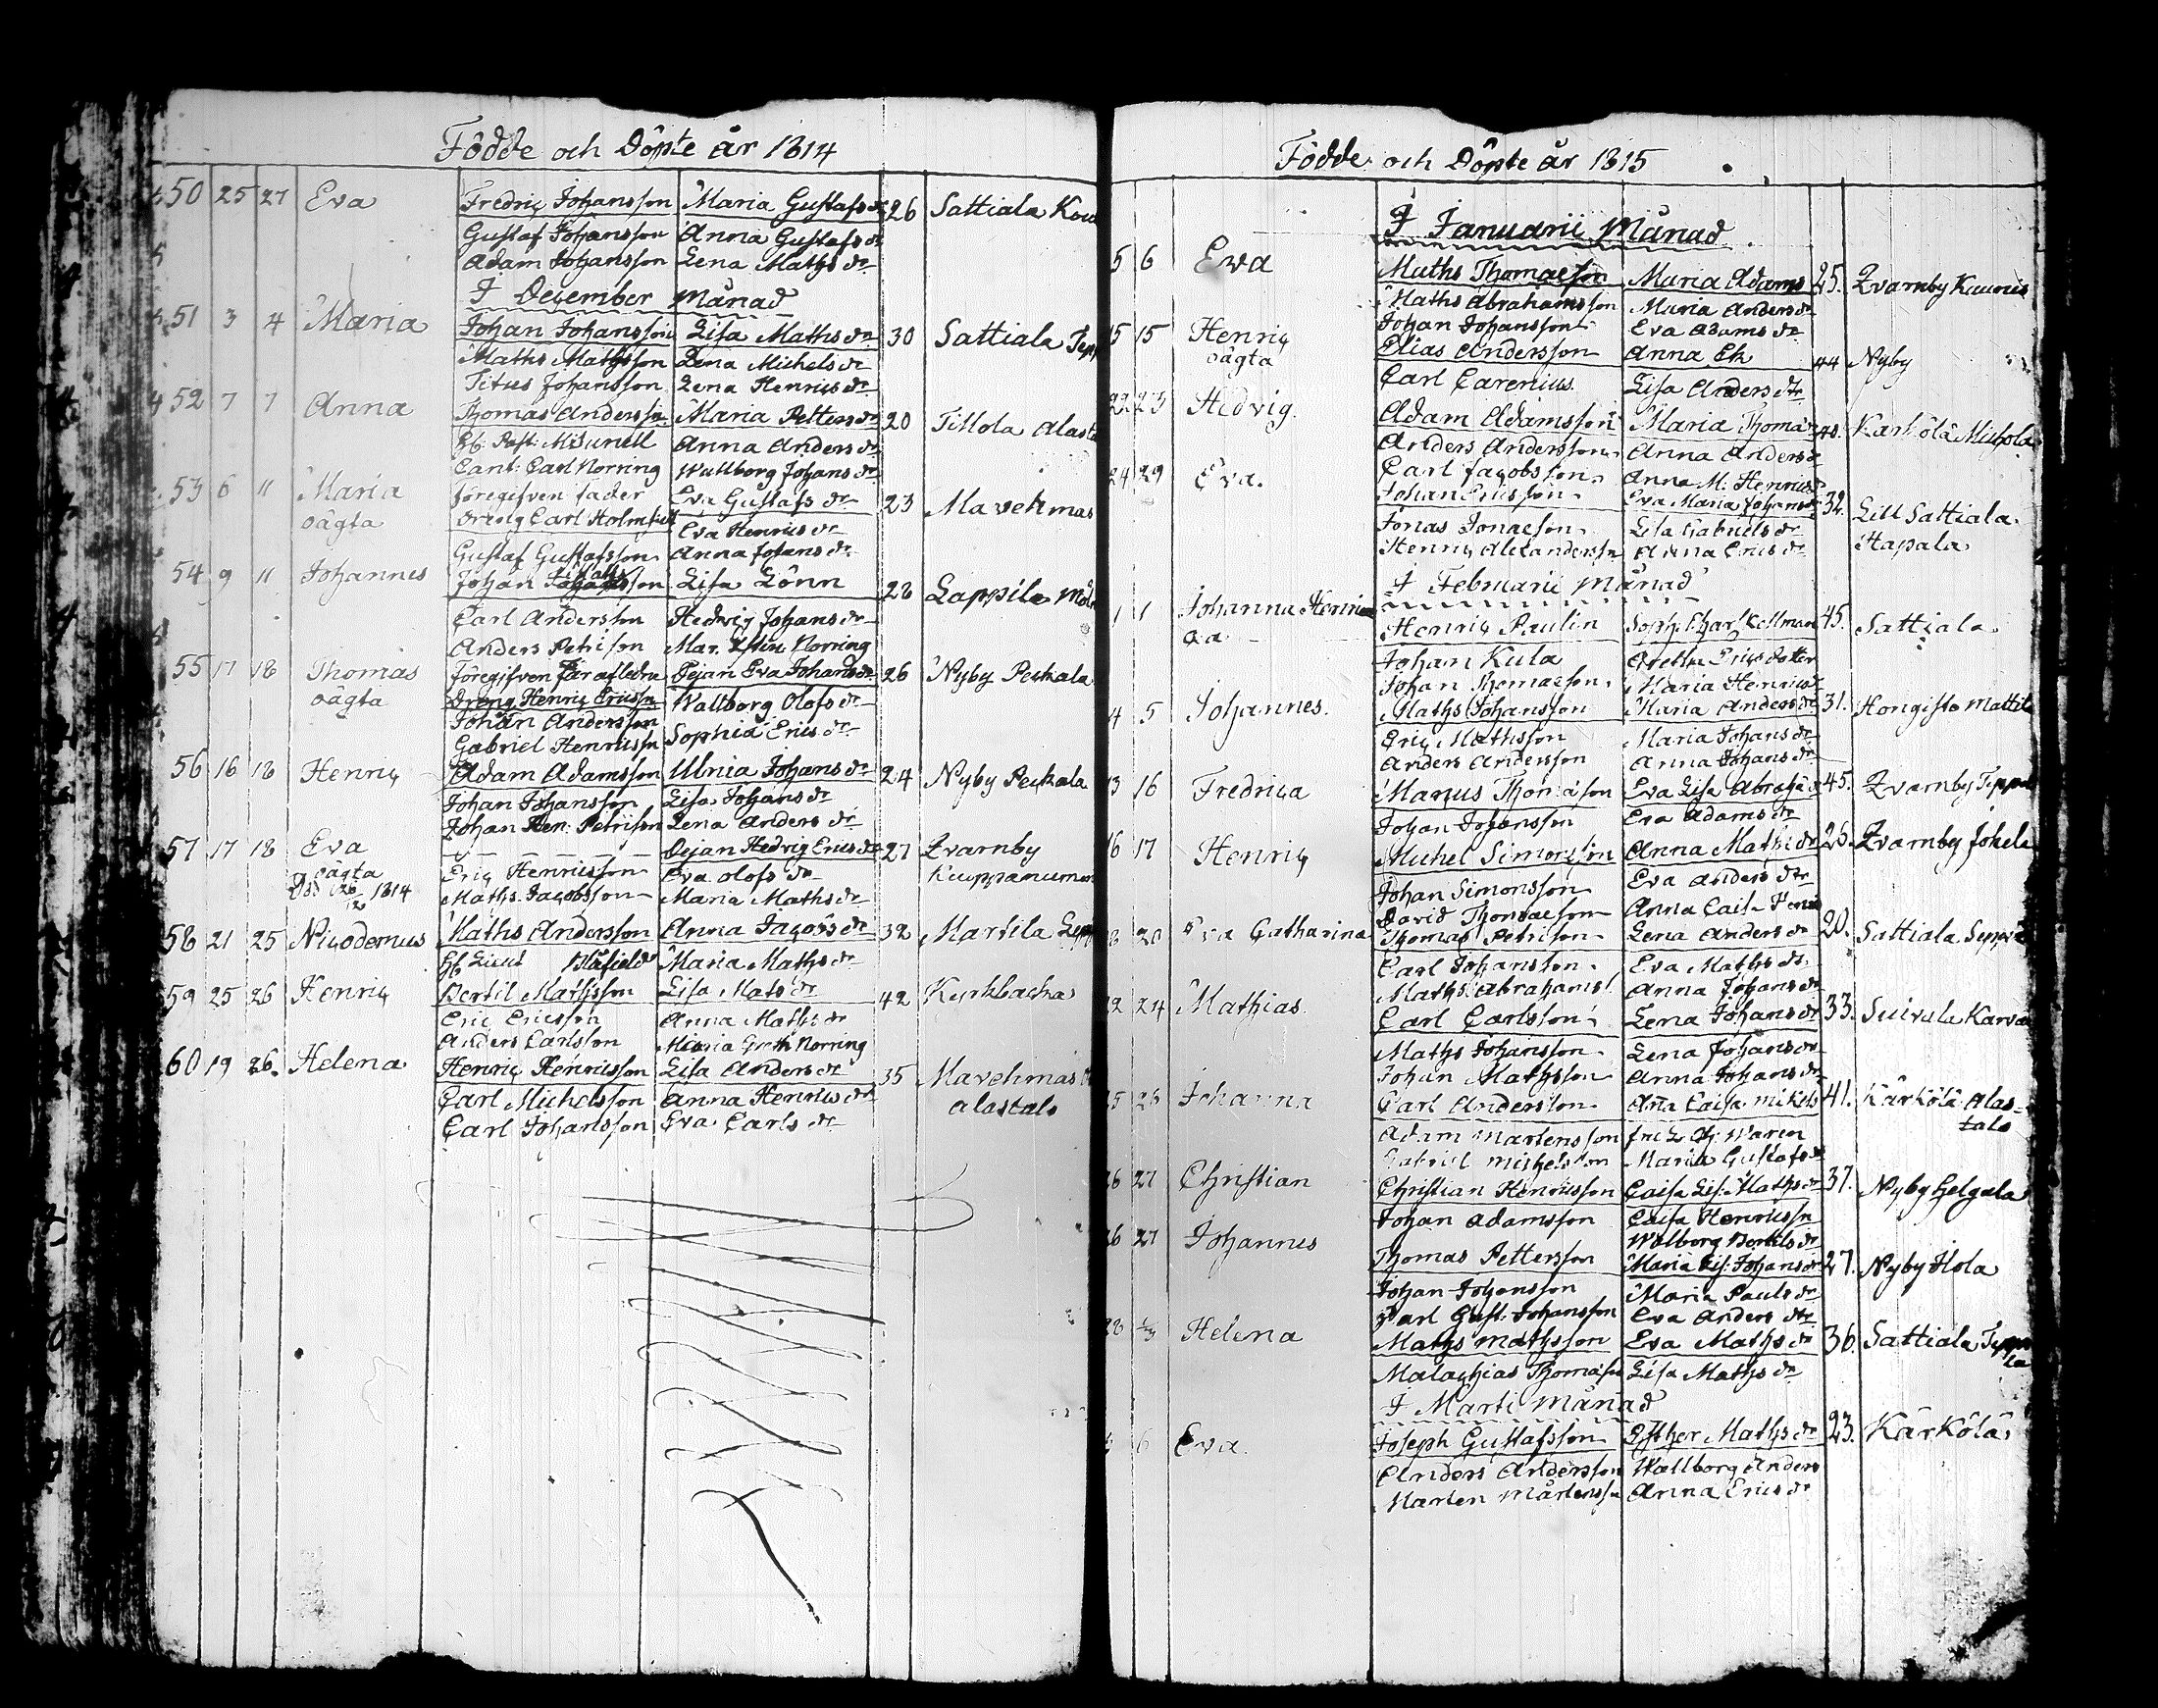 Födde och Döpte år 1814
50 25 27 Eva Fredric Johansson Maria Gustafs dr 26 Sattiala
Gustaf Johansson Anna Gustafs dr
Adam Johansson Lena Maths dr
I December Månad
51 3 4 Maria Johan Johansson Lisa Maths dr 30 Sattiala
Maths Mathsson Lena Michels dr
Titus Johansson Lena Henrics dr
52 7 7 Anna Thomas Andersson Maria Petters dr 20 Tillola
Anna Anders dr
Cant: Carl Norring Wallborg Johans dr
53 6 11 Maria föregifven fader Eva Gustafs dr 23 Mavehmas
oägta Dreng Carl Eva Henrics dr
Gustaf Gustafsson Anna Johans dr
54 9 11 Johannes Johan Lisa Lönn 28 Lappila
Carl Andersson Hedvig Johans dr
Anders Petrison Mar. Norring
55 17 18 Thomas föregifven far Pejan Eva Johans dr 26 Nyby Peckala
oägta Dreng Henric Ericsson Wallborg Olofs dr
Johan Andersson
Gabriel Henricsson Sophia Erics dr
56 16 18 Henric Adam Adamsson Johans dr 24 Nyby Peckala
Johan Johansson Lisa Johans dr
Johan Hen: Petrison Lena Anders dr
57 17 18 Eva Pejan Hedvig Erics dr 27 Qvarnby
oägta Eric Henricsson Eva Olofs dr
1814 Maths Jacobsson Maria Maths dr
58 21 25 Nicodemus Maths Andersson Anna Jacobs dr 32 Martila
Maria Maths dr
59 25 26 Henric Bertil Mathsson Lisa Mats dr 42 Kyrkbacka
Eric Ericsson Anna Maths dr
Anders Carlsson Maria Greth Norring
60 19 26. Helena Henric Henricsson Lisa Anders dr 35 Mavehmas
Carl Michelsson Anna Henrics dr alastalo
Carl Johansson Eva Carls dr
Födde och Döpte år 1815
I Januarii Månad
5 6 Eva Maths Thomasson Maria Adams 25. Qvarnby
Maths Abrahamsson Maria Anders dr
Johan Johansson Eva Adams dr
15 15 Henric Elias Andersson Anna Ek 44 Nyby
oägta Carl Carenius Lisa Anders dtr
22 23 Hedvig. Adam Adamsson Maria Thomas 40. Kärkölä
Anders Andersson Anna Anders dr
Carl Jacobsson Anna M: Henrics
24 29 Eva. Johan Ericsson Eva Maria Johans dr 32. Lill Sattiala
Jonas Jonaeson Lisa Gabriels dr Hapala
Henric Alexandersson Anna Erics dr
I Februarii Månad
1 1 Johanna Henric Henric Paulin Soph. Kellman 45. Sattiala.
Johan Kula Erics dotter
Johan Thomaeson Maria Henrics dr
4 5 Johannes. Maths Johansson Maria Anders dr 31. Hongisto Mattila
Eric Mathsson Maria Johans dr
Anders Andersson Anna Johans dr
13 16 Fredrica Marcus Thomasson Eva Lisa 45. Qvarnby
Johan Johansson Eva Adams dr
16 17 Henric Michel Simonsson Anna Maths dr 25. Qvarnby
Johan Simonsson Eva Anders dtr
David Thomaeson Anna Caisa
18 20 Eva Catharina Thomas Petrison Lena Anders dr 20. Sattiala
Carl Johansson Eva Maths dr
Maths Abrahams Anna Johans dr
22 24 Mathias. Carl Carlsson Lena Johans dr 33. Suivala
Maths Johansson Lena Johans dr
Johan Mathsson Anna Johans dr
25 26 Johanna Carl Andersson Anna Caisa Mikels 41. Kärkölä Alas-
talo
Adam Martensson
Gabriel Michelsson Maria Gustafs dr
26 27 Christian Christian Henricsson Caisa Lis: Maths dr 37. Nyby Helgala
Johan Adamsson Caisa Henricssn
Walborg Bertils dr
26 27 Johannes Thomas Pettersson Maria Lis: Johans dr 27. Nyby Hola
Johan Johansson Maria Pauls dr
Carl Gust: Johansson Eva Anders dtr
28 1/3 Helena Maths Mathsson Eva Maths dr 36. Sattiala
Malachias Thomasson Lisa Maths dr
I Marti Månad
6 Eva. Joseph Gustafsson Esther Maths dr 23. Kärkölä
Anders Andersson Wallborg Anders
Marten Mårtensson Anna Erics dr